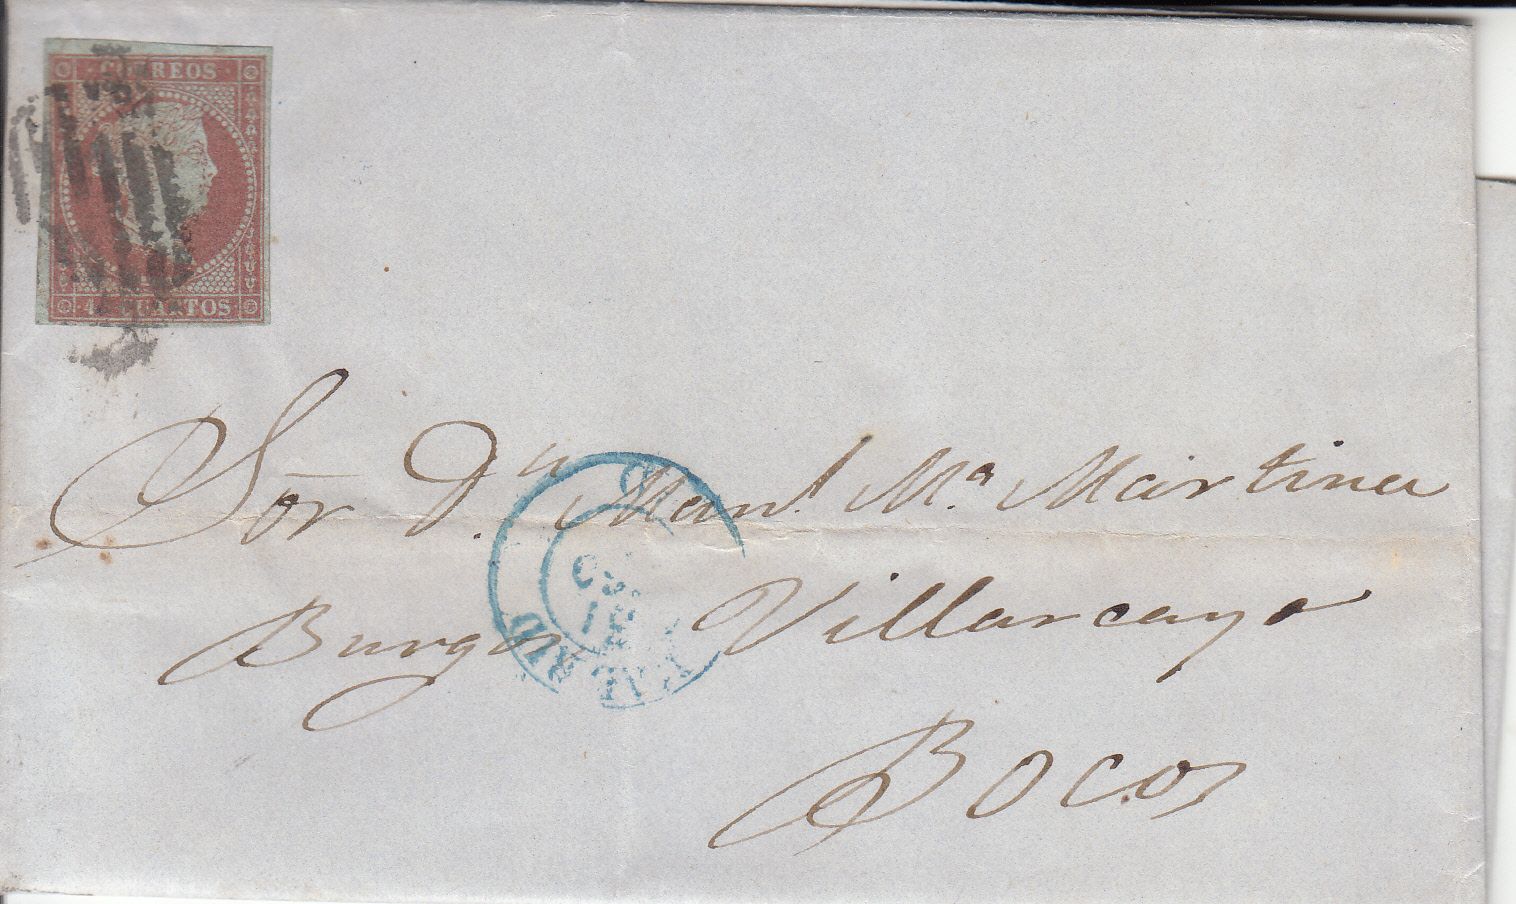 CORREOS
4 CUARTOS
Sor Dn Manl. Ma. Martinez
Burgos Villarcayo
Bocos